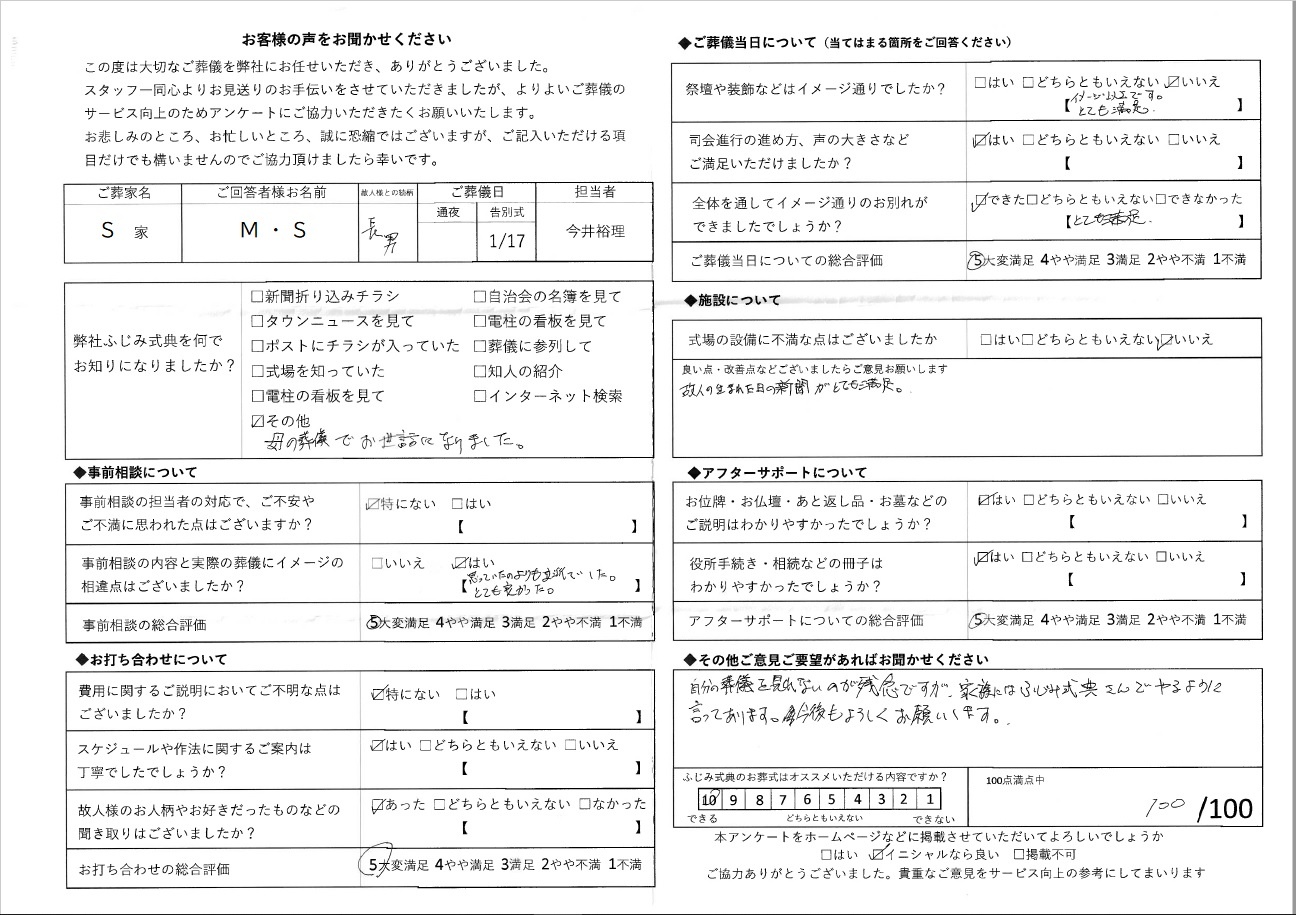 お客様の声をお聞かせください
この度は大切なご葬儀を弊社にお任せいただき、ありがとうございました。
スタッフ一同心よりお見送りのお手伝いをさせていただきましたが、よりよいご葬儀の
サービス向上のためアンケートにご協力いただきたくお願いいたします。
お悲しみのところ、お忙しいところ、誠に恐縮ではございますが、ご記入いただける項
目だけでも構いませんのでご協力頂けましたら幸いです。
ご葬家名 ご回答者様お名前 故人様との続柄 ご葬儀日 担当者
通夜 告別式
S 家 M・S 長男 1/17 今井裕理
弊社ふじみ式典を何で
お知りになりましたか？
□新聞折り込みチラシ □自治会の名簿を見て
□タウンニュースを見て □電柱の看板を見て
□ポストにチラシが入っていた □葬儀に参列して
□式場を知っていた □知人の紹介
□電柱の看板を見て □インターネット検索
☑その他
母の葬儀でお世話になりました。
◆事前相談について
事前相談の担当者の対応で、ご不安や
ご不満に思われた点はございますか？
☑特にない □はい
【 】
事前相談の内容と実際の葬儀にイメージの
相違点はございましたか？
□いいえ ☑はい
【思っていたのよりも立派でした。
とても良かった。】
事前相談の総合評価 5大変満足 4やや満足 3満足 2やや不満 1不満
◆お打ち合わせについて
費用に関するご説明においてご不明な点は
ございましたか？
☑特にない □はい
【 】
スケジュールや作法に関するご案内は
丁寧でしたでしょうか？
☑はい □どちらともいえない □いいえ
【 】
故人様のお人柄やお好きだったものなどの
聞き取りはございましたか？
☑あった □どちらともいえない □なかった
【 】
お打ち合わせの総合評価 5大変満足 4やや満足 3満足 2やや不満 1不満
◆ご葬儀当日について（当てはまる箇所をご回答ください）
祭壇や装飾などはイメージ通りでしたか？
□はい □どちらともいえない ☑いいえ
【イメージ以上です。
とても満足。】
司会進行の進め方、声の大きさなど
ご満足いただけましたか？
☑はい □どちらともいえない □いいえ
【 】
全体を通してイメージ通りのお別れが
できましたでしょうか？
☑できた □どちらともいえない □できなかった
【とても満足。】
ご葬儀当日についての総合評価 5大変満足 4やや満足 3満足 2やや不満 1不満
◆施設について
式場の設備に不満な点はございましたか □はい □どちらともいえない ☑いいえ
良い点・改善点などございましたらご意見お願いします
故人の生まれた日の新聞がとても満足。
◆アフターサポートについて
お位牌・お仏壇・あと返し品・お墓などの
ご説明はわかりやすかったでしょうか？
☑はい □どちらともいえない □いいえ
【 】
役所手続き・相続などの冊子は
わかりやすかったでしょうか？
☑はい □どちらともいえない □いいえ
【 】
アフターサポートについての総合評価 5大変満足 4やや満足 3満足 2やや不満 1不満
◆その他ご意見ご要望があればお聞かせください
自分の葬儀を見れないのが残念ですが、家族にはふじみ式典さんでやるように
言ってあります。今後もよろしくお願いします。
ふじみ式典のお葬式はオススメいただける内容ですか？
10 9 8 7 6 5 4 3 2 1
できる どちらともいえない できない
100点満点中
100 /100
本アンケートをホームページなどに掲載させていただいてよろしいでしょうか
□はい ☑イニシャルなら良い □掲載不可
ご協力ありがとうございました。貴重なご意見をサービス向上の参考にしてまいります